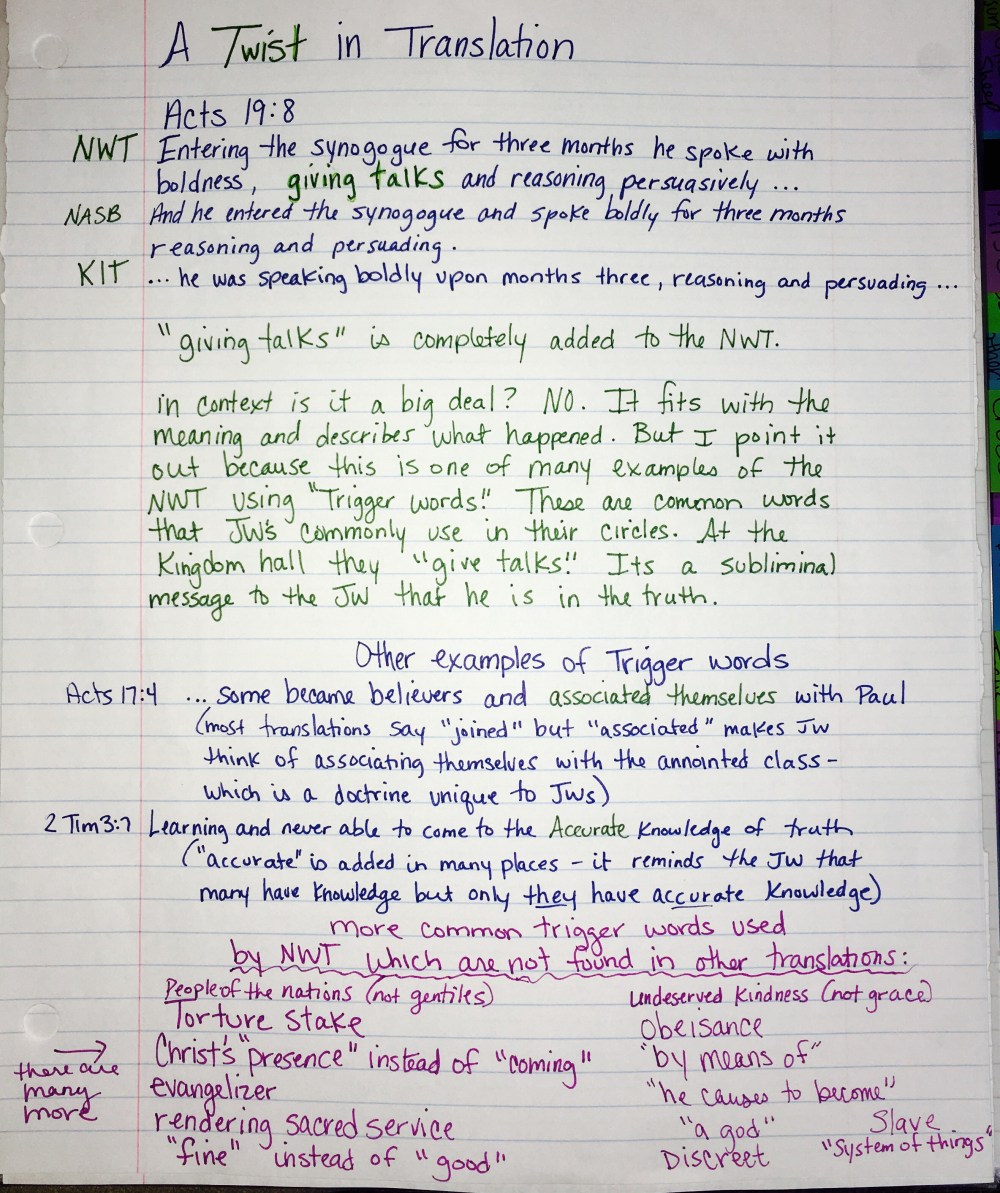 A Twist in Translation
Acts 19:8
NWT Entering the synogogue for three months he spoke with
boldness, giving talks and reasoning persuasively ...
NASB And he entered the synogogue and spoke boldly for three months
reasoning and persuading.
KIT ... he was speaking boldly upon months three, reasoning and persuading ...
"giving talks" is completely added to the NWT.
in context is it a big deal? NO. It fits with the
meaning and describes what happened. But I point it
out because this is one of many examples of the
NWT using "Trigger words!" These are common words
that JW's commonly use in their circles. At the
Kingdom hall they "give talks!" Its a subliminal
message to the JW that he is in the truth.
Other examples of Trigger words
Acts 17:4 ... some became believers and associated themselves with Paul
(most translations say "joined" but "associated" makes JW
think of associating themselves with the annointed class -
which is a doctrine unique to JWs)
2 Tim 3:7 Learning and never able to come to the Accurate Knowledge of truth
("accurate" is added in many places - it reminds the JW that
many have knowledge but only they have accurate Knowledge)
more common trigger words used
by NWT which are not found in other translations:
People of the nations (not gentiles) undeserved kindness (not grace)
Torture Stake obeisance
Christ's "presence" instead of "coming" "by means of"
there are many more →
evangelizer "he causes to become"
rendering sacred service "a god" Slave
"fine" instead of "good" Discreet "System of things"